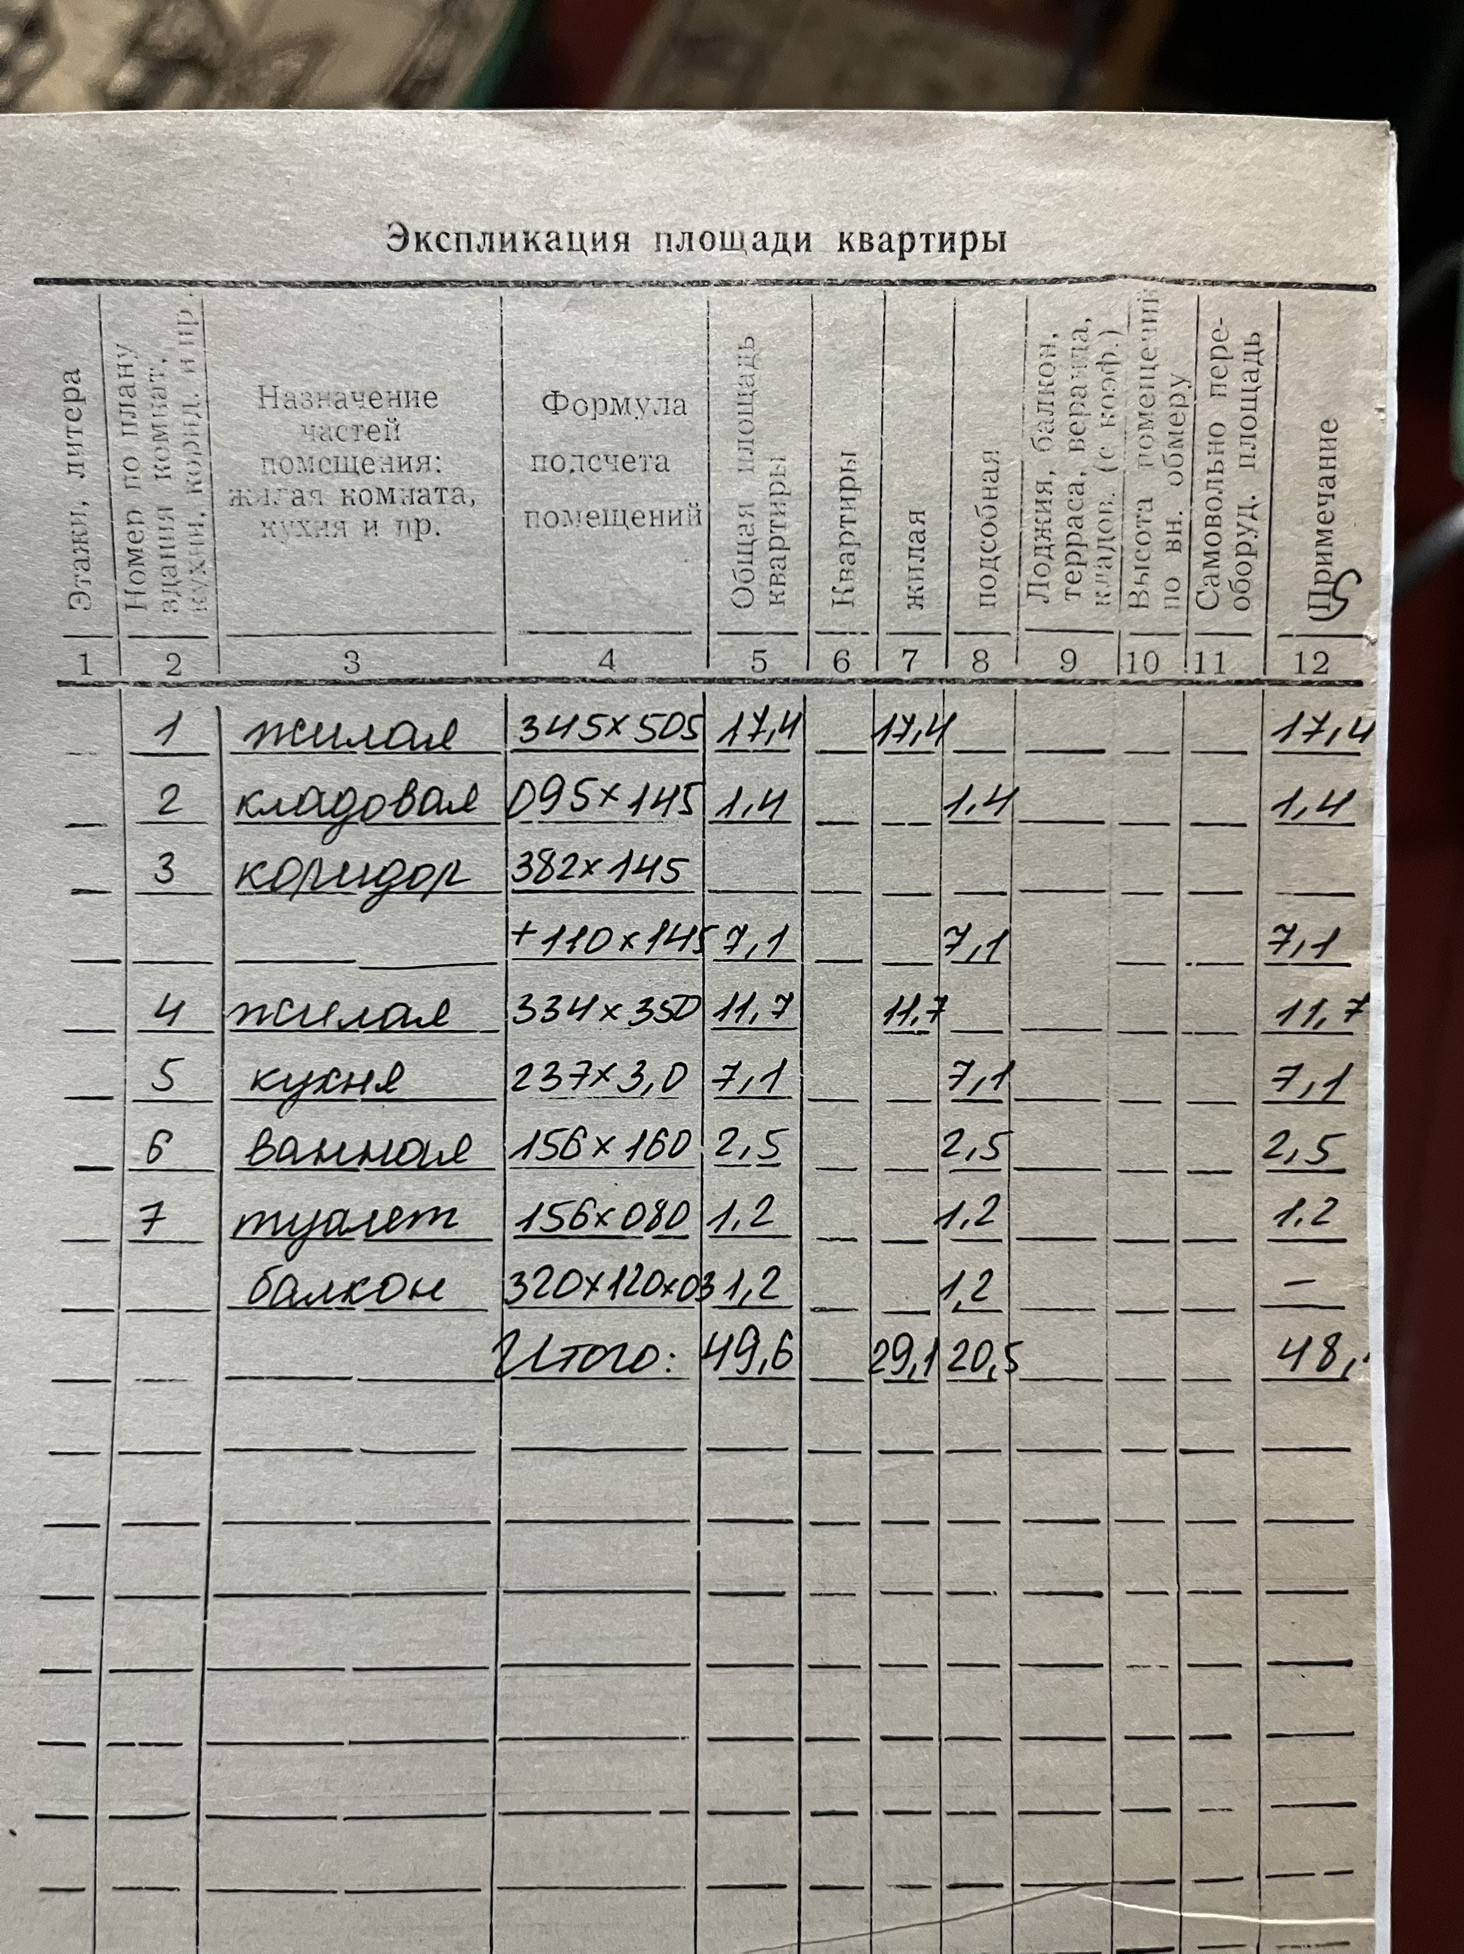 Экспликация площади квартиры
Этажи, литера
Номер по плану
здания комнат,
кухни, корид. и пр.
Назначение
частей
помещения:
жилая комната,
кухня и пр.
Формула
подсчета
помещений
Общая площадь
квартиры
Квартиры
жилая
подсобная
Лоджия, балкон,
терраса, веранда,
кладов. (с коэф.)
Высота помещений
по вн. обмеру
Самовольно пере-
оборуд. площадь
Примечание
S
1 2 3 4 5 6 7 8 9 10 11 12
1 жилая 345×505 17,4 17,4 17,4
2 кладовая 095×145 1,4 1,4 1,4
3 коридор 382×145
+110×145 7,1 7,1 7,1
4 жилая 334×350 11,7 11,7 11,7
5 кухня 237×3,0 7,1 7,1 7,1
6 ванная 156×160 2,5 2,5 2,5
7 туалет 156×080 1,2 1,2 1.2
балкон 320×120×03 1,2 1,2 –
Итого: 49,6 29,1 20,5 48,